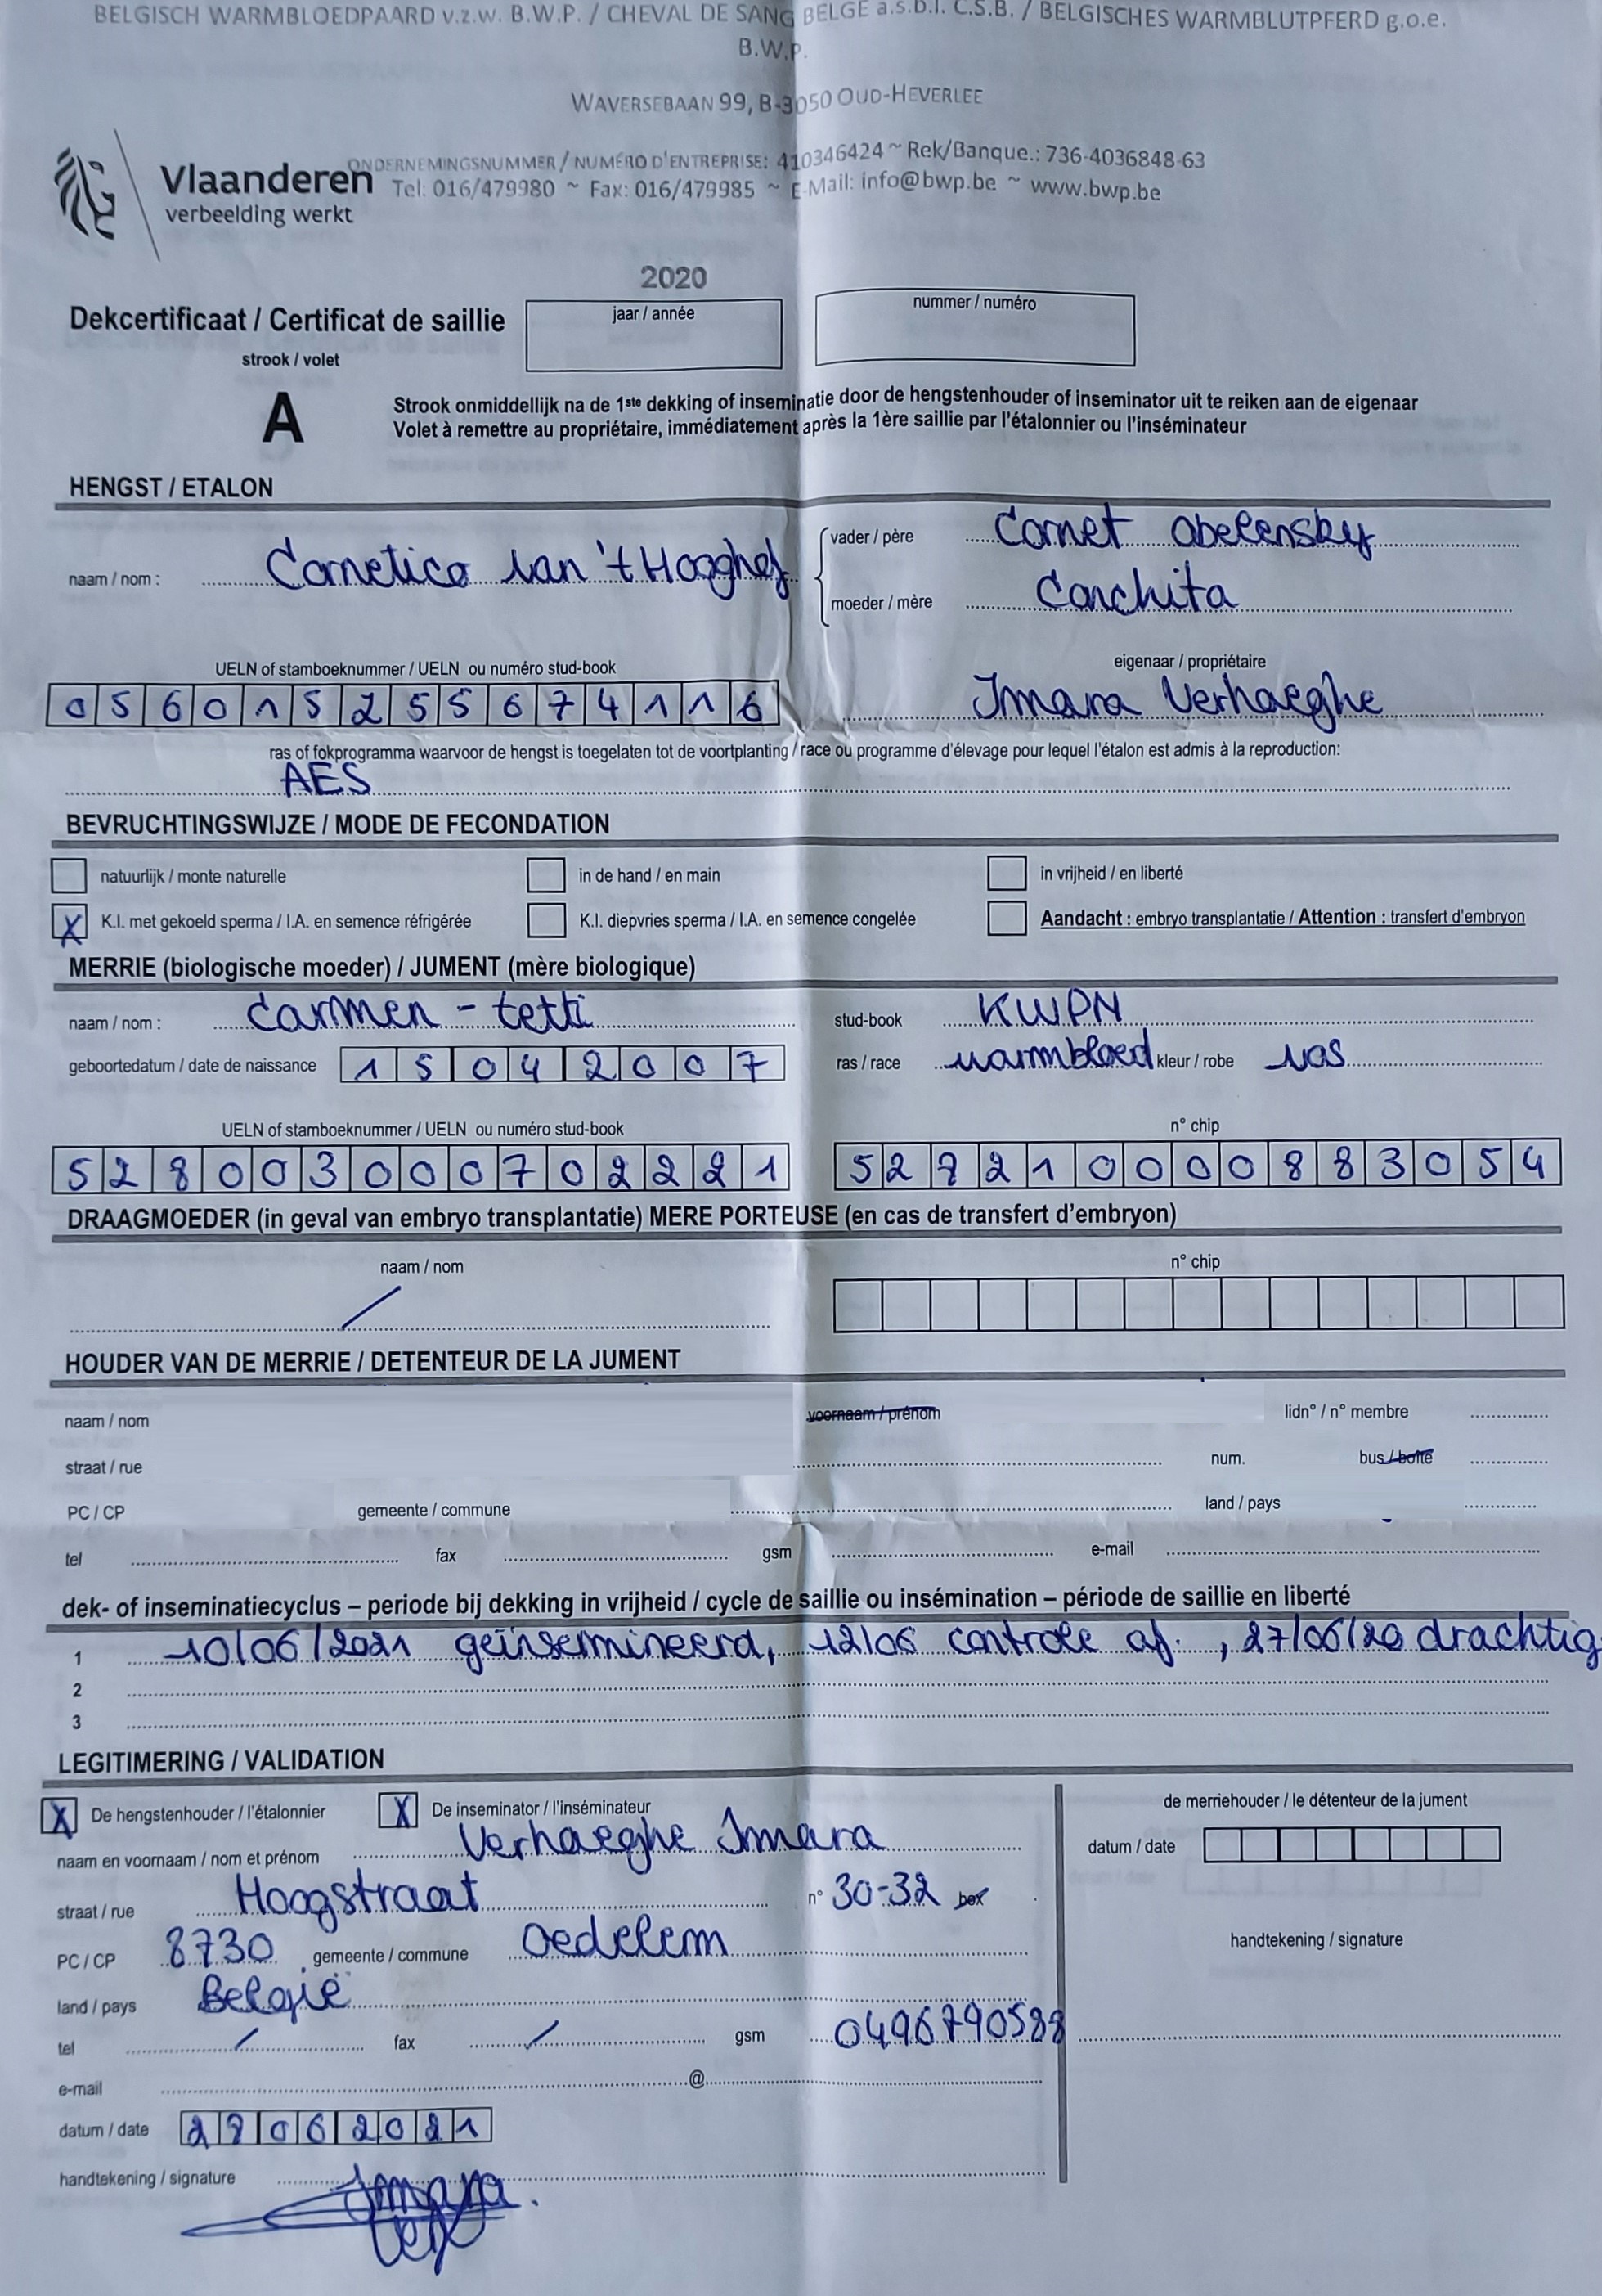 BELGISCH WARMBLOEDPAARD v.z.w. B.W.P. / CHEVAL DE SANG BELGE a.s.b.l. C.S.B. / BELGISCHES WARMBLUTPFERD g.o.e.
B.W.P.
WAVERSEBAAN 99, B-3050 OUD-HEVERLEE
ONDERNEMINGSNUMMER / NUMÉRO D'ENTREPRISE: 410346424 ~ Rek/Banque.: 736-4036848-63
Vlaanderen
Tel: 016/479980 ~ Fax: 016/479985 ~ E-Mail: info@bwp.be ~ www.bwp.be
verbeelding werkt
2020
Dekcertificaat / Certificat de saillie
jaar / année
nummer / numéro
strook / volet
A
Strook onmiddellijk na de 1ste dekking of inseminatie door de hengstenhouder of inseminator uit te reiken aan de eigenaar
Volet à remettre au propriétaire, immédiatement après la 1ère saillie par l'étalonnier ou l'inséminateur
HENGST / ETALON
vader / père Cornet obelensky
naam / nom : Cornetico van 't Hooghof
moeder / mère Conchita
UELN of stamboeknummer / UELN ou numéro stud-book
eigenaar / propriétaire
056015255674116
Imara Verhaeghe
ras of fokprogramma waarvoor de hengst is toegelaten tot de voortplanting / race ou programme d'élevage pour lequel l'étalon est admis à la reproduction:
AES
BEVRUCHTINGSWIJZE / MODE DE FECONDATION
natuurlijk / monte naturelle in de hand / en main in vrijheid / en liberté
X K.I. met gekoeld sperma / I.A. en semence réfrigérée K.I. diepvries sperma / I.A. en semence congelée Aandacht : embryo transplantatie / Attention : transfert d'embryon
MERRIE (biologische moeder) / JUMENT (mère biologique)
naam / nom : Carmen - tetti stud-book KWPN
geboortedatum / date de naissance 15042007 ras / race warmbloed kleur / robe vos
UELN of stamboeknummer / UELN ou numéro stud-book n° chip
528003000702221 528210000883054
DRAAGMOEDER (in geval van embryo transplantatie) MERE PORTEUSE (en cas de transfert d'embryon)
naam / nom n° chip
/
HOUDER VAN DE MERRIE / DETENTEUR DE LA JUMENT
naam / nom voornaam / prénom lidn° / n° membre
straat / rue num. bus / boîte
PC / CP gemeente / commune land / pays
tel fax gsm e-mail
dek- of inseminatiecyclus – periode bij dekking in vrijheid / cycle de saillie ou insémination – période de saillie en liberté
1 10/06/2021 geïnsemineerd, 12/06 controle af. , 27/06/20 drachtig
2
3
LEGITIMERING / VALIDATION
X De hengstenhouder / l'étalonnier X De inseminator / l'inséminateur
de merriehouder / le détenteur de la jument
naam en voornaam / nom et prénom Verhaeghe Imara
datum / date
straat / rue Hoogstraat n° 30-32 box
PC / CP 8730 gemeente / commune Oedelem
handtekening / signature
land / pays België
tel / fax / gsm 0496790588
e-mail @
datum / date 28062021
handtekening / signature Imara